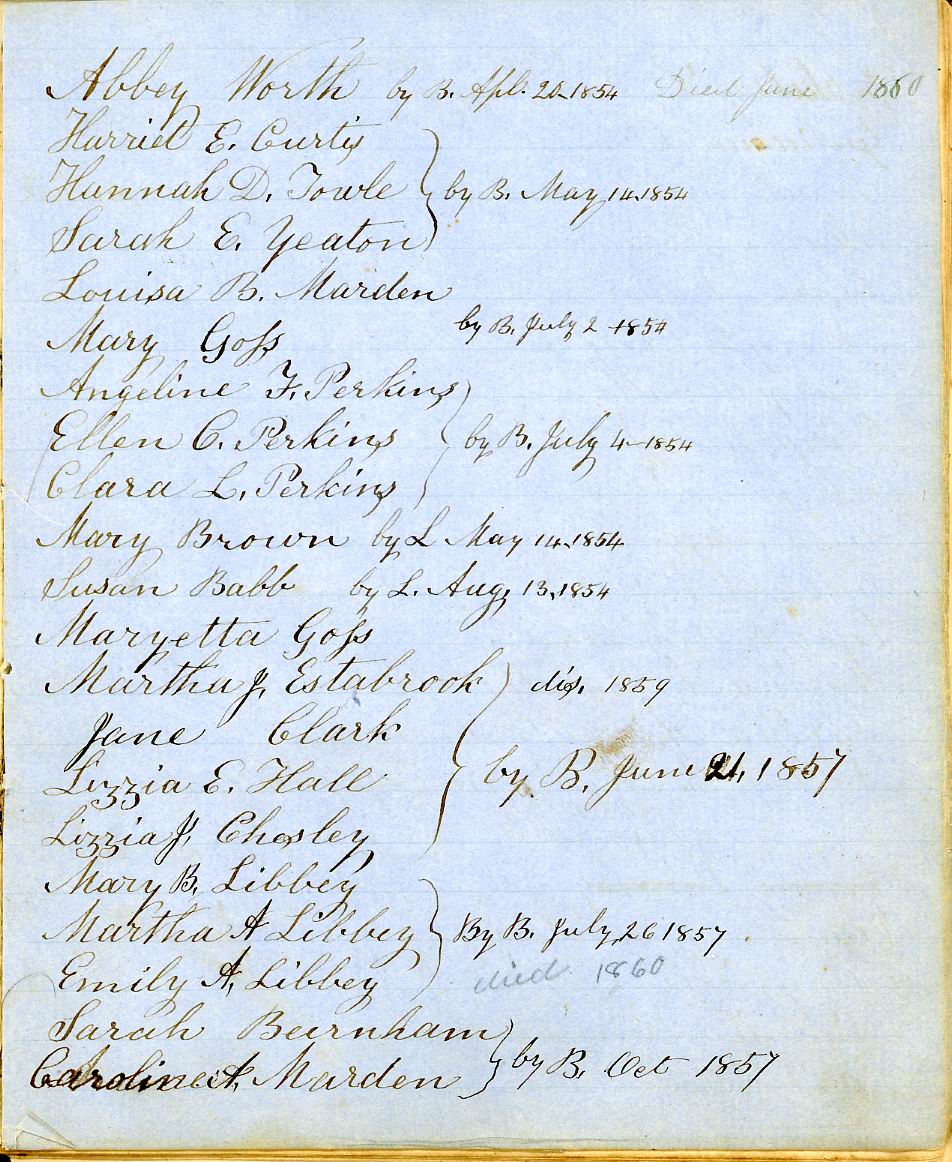 Abbey Worth by B. Apl. 20. 1854 Died June 1860
Harriet E. Curtis
Hannah D. Towle by B. May 14. 1854
Sarah E. Yeaton
Louisa B. Marden
by B. July 2 1854
Mary Goss
Angeline F. Perkins
Ellen C. Perkins by B. July 4 1854
Clara L. Perkins
Mary Brown by L May 14. 1854
Susan Babb by L. Aug. 13. 1854
Maryetta Goss
Martha J. Estabrook dis. 1859
Jane Clark
Lizzia E. Hall by B. June 21, 1857
Lizzia J. Chesley
Mary B. Libbey
Martha A Libbey By B. July 26 1857
Emily A. Libbey died 1860
Sarah Burnham
Caroline A. Marden by B. Oct 1857